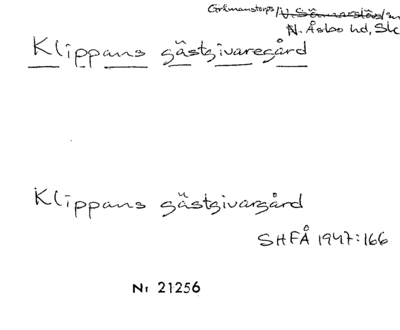 Grämanstorps/
N. Åsbo hd, Sk
Klippans gästgivaregård
Klippans gästgivargård
SHFÅ 1947:166
Nr 21256